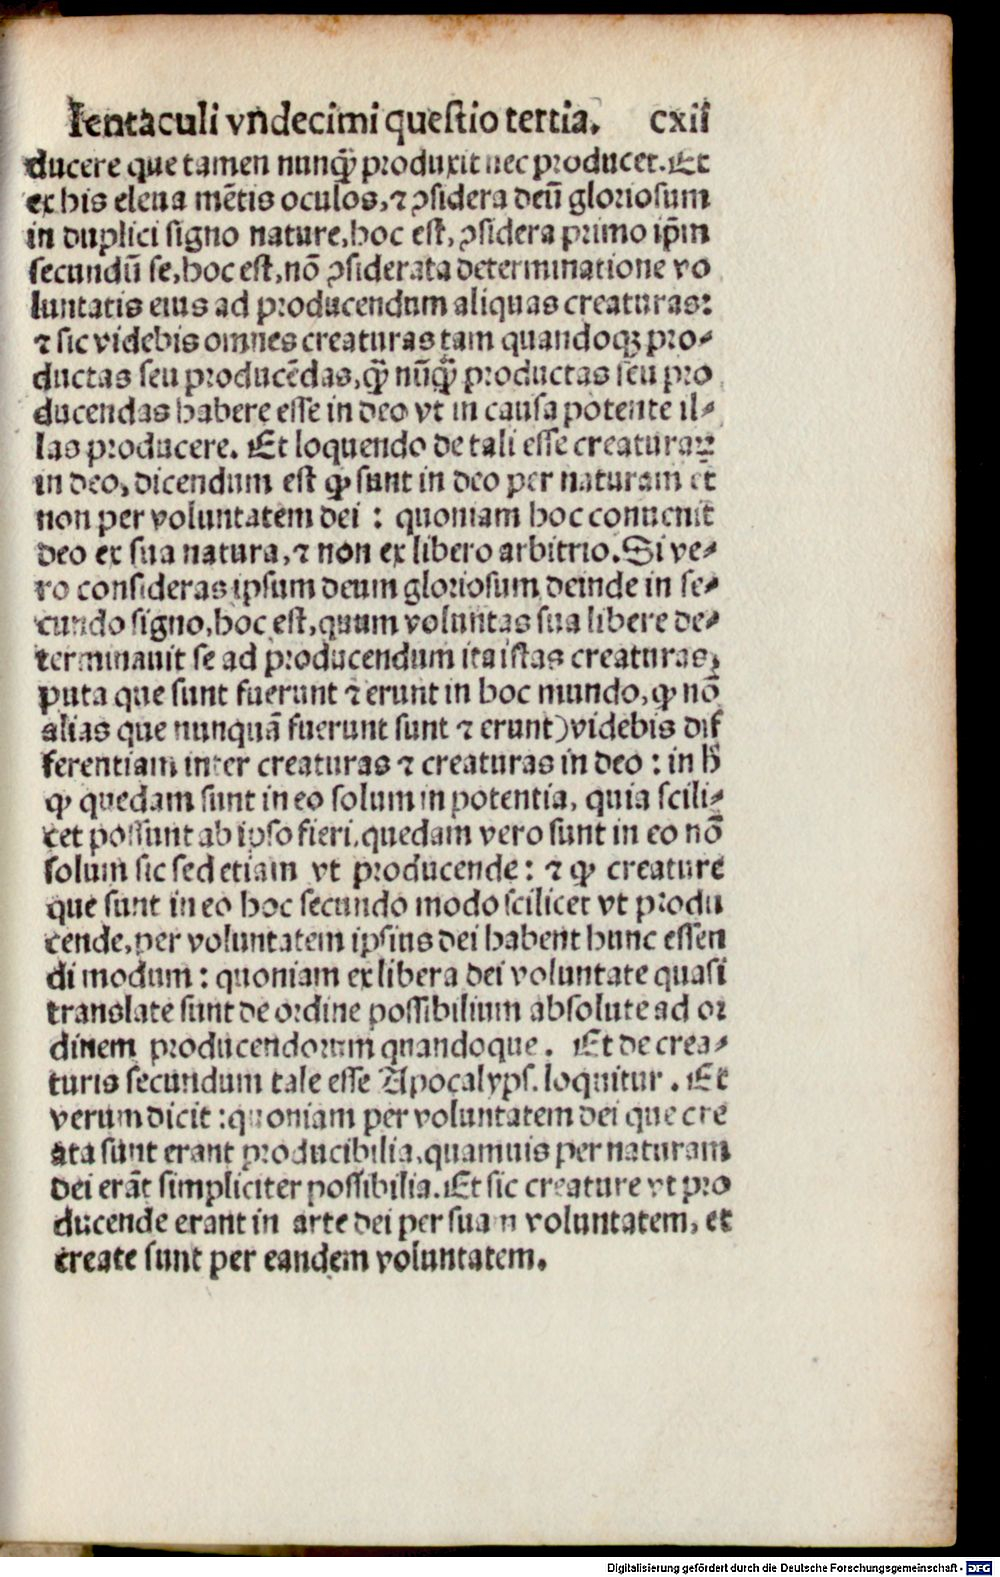 Ientaculi vndecimi questio tertia. cxii
ducere que tamen nunq̃ꝫ produxit nec producet. Et
ex his eleua mẽtis oculos, ⁊ ꝯsidera deũ gloriosum
in duplici signo nature, hoc est, ꝯsidera primo ip̃m
secundũ se, hoc est, nõ ꝯsiderata determinatione vo
luntatis eius ad producendum aliquas creaturas:
⁊ sic videbis omnes creaturas tam quandoqꝫ pro⸗
ductas seu producẽdas, q̃ꝫ nũq̃ꝫ productas seu pro
ducendas habere esse in deo vt in causa potente il⸗
las producere. Et loquendo de tali esse creaturaꝝ
in deo, dicendum est ꝙ sunt in deo per naturam et
non per voluntatem dei : quoniam hoc conuenit
deo ex sua natura, ⁊ non ex libero arbitrio. Si ve⸗
ro consideras ipsum deum gloriosum deinde in se⸗
cundo signo, hoc est, quum voluntas sua libere de⸗
terminauit se ad producendum ita istas creaturas,
puta que sunt fuerunt ⁊ erunt in hoc mundo, ꝙ nõ
alias que nunquã fuerunt sunt ⁊ erunt) videbis dif
ferentiam inter creaturas ⁊ creaturas in deo : in h̃
ꝙ quedam sunt in eo solum in potentia, quia scili⸗
cet possunt ab ipso fieri, quedam vero sunt in eo nõ
solum sic sed etiam vt producende : ⁊ ꝙ creature
que sunt in eo hoc secundo modo scilicet vt produ
cende, per voluntatem ipsius dei habent hunc essen
di modum : quoniam ex libera dei voluntate quasi
translate sunt de ordine possibilium absolute ad or
dinem producendorum quandoque. Et de crea⸗
turis secundum tale esse Apocalyps. loquitur. Et
verum dicit : quoniam per voluntatem dei que cre
ata sunt erant producibilia, quamuis per naturam
dei erãt simpliciter possibilia. Et sic creature vt pro
ducende erant in arte dei per suam voluntatem, et
create sunt per eandem voluntatem.
Digitalisierung gefördert durch die Deutsche Forschungsgemeinschaft - DFG